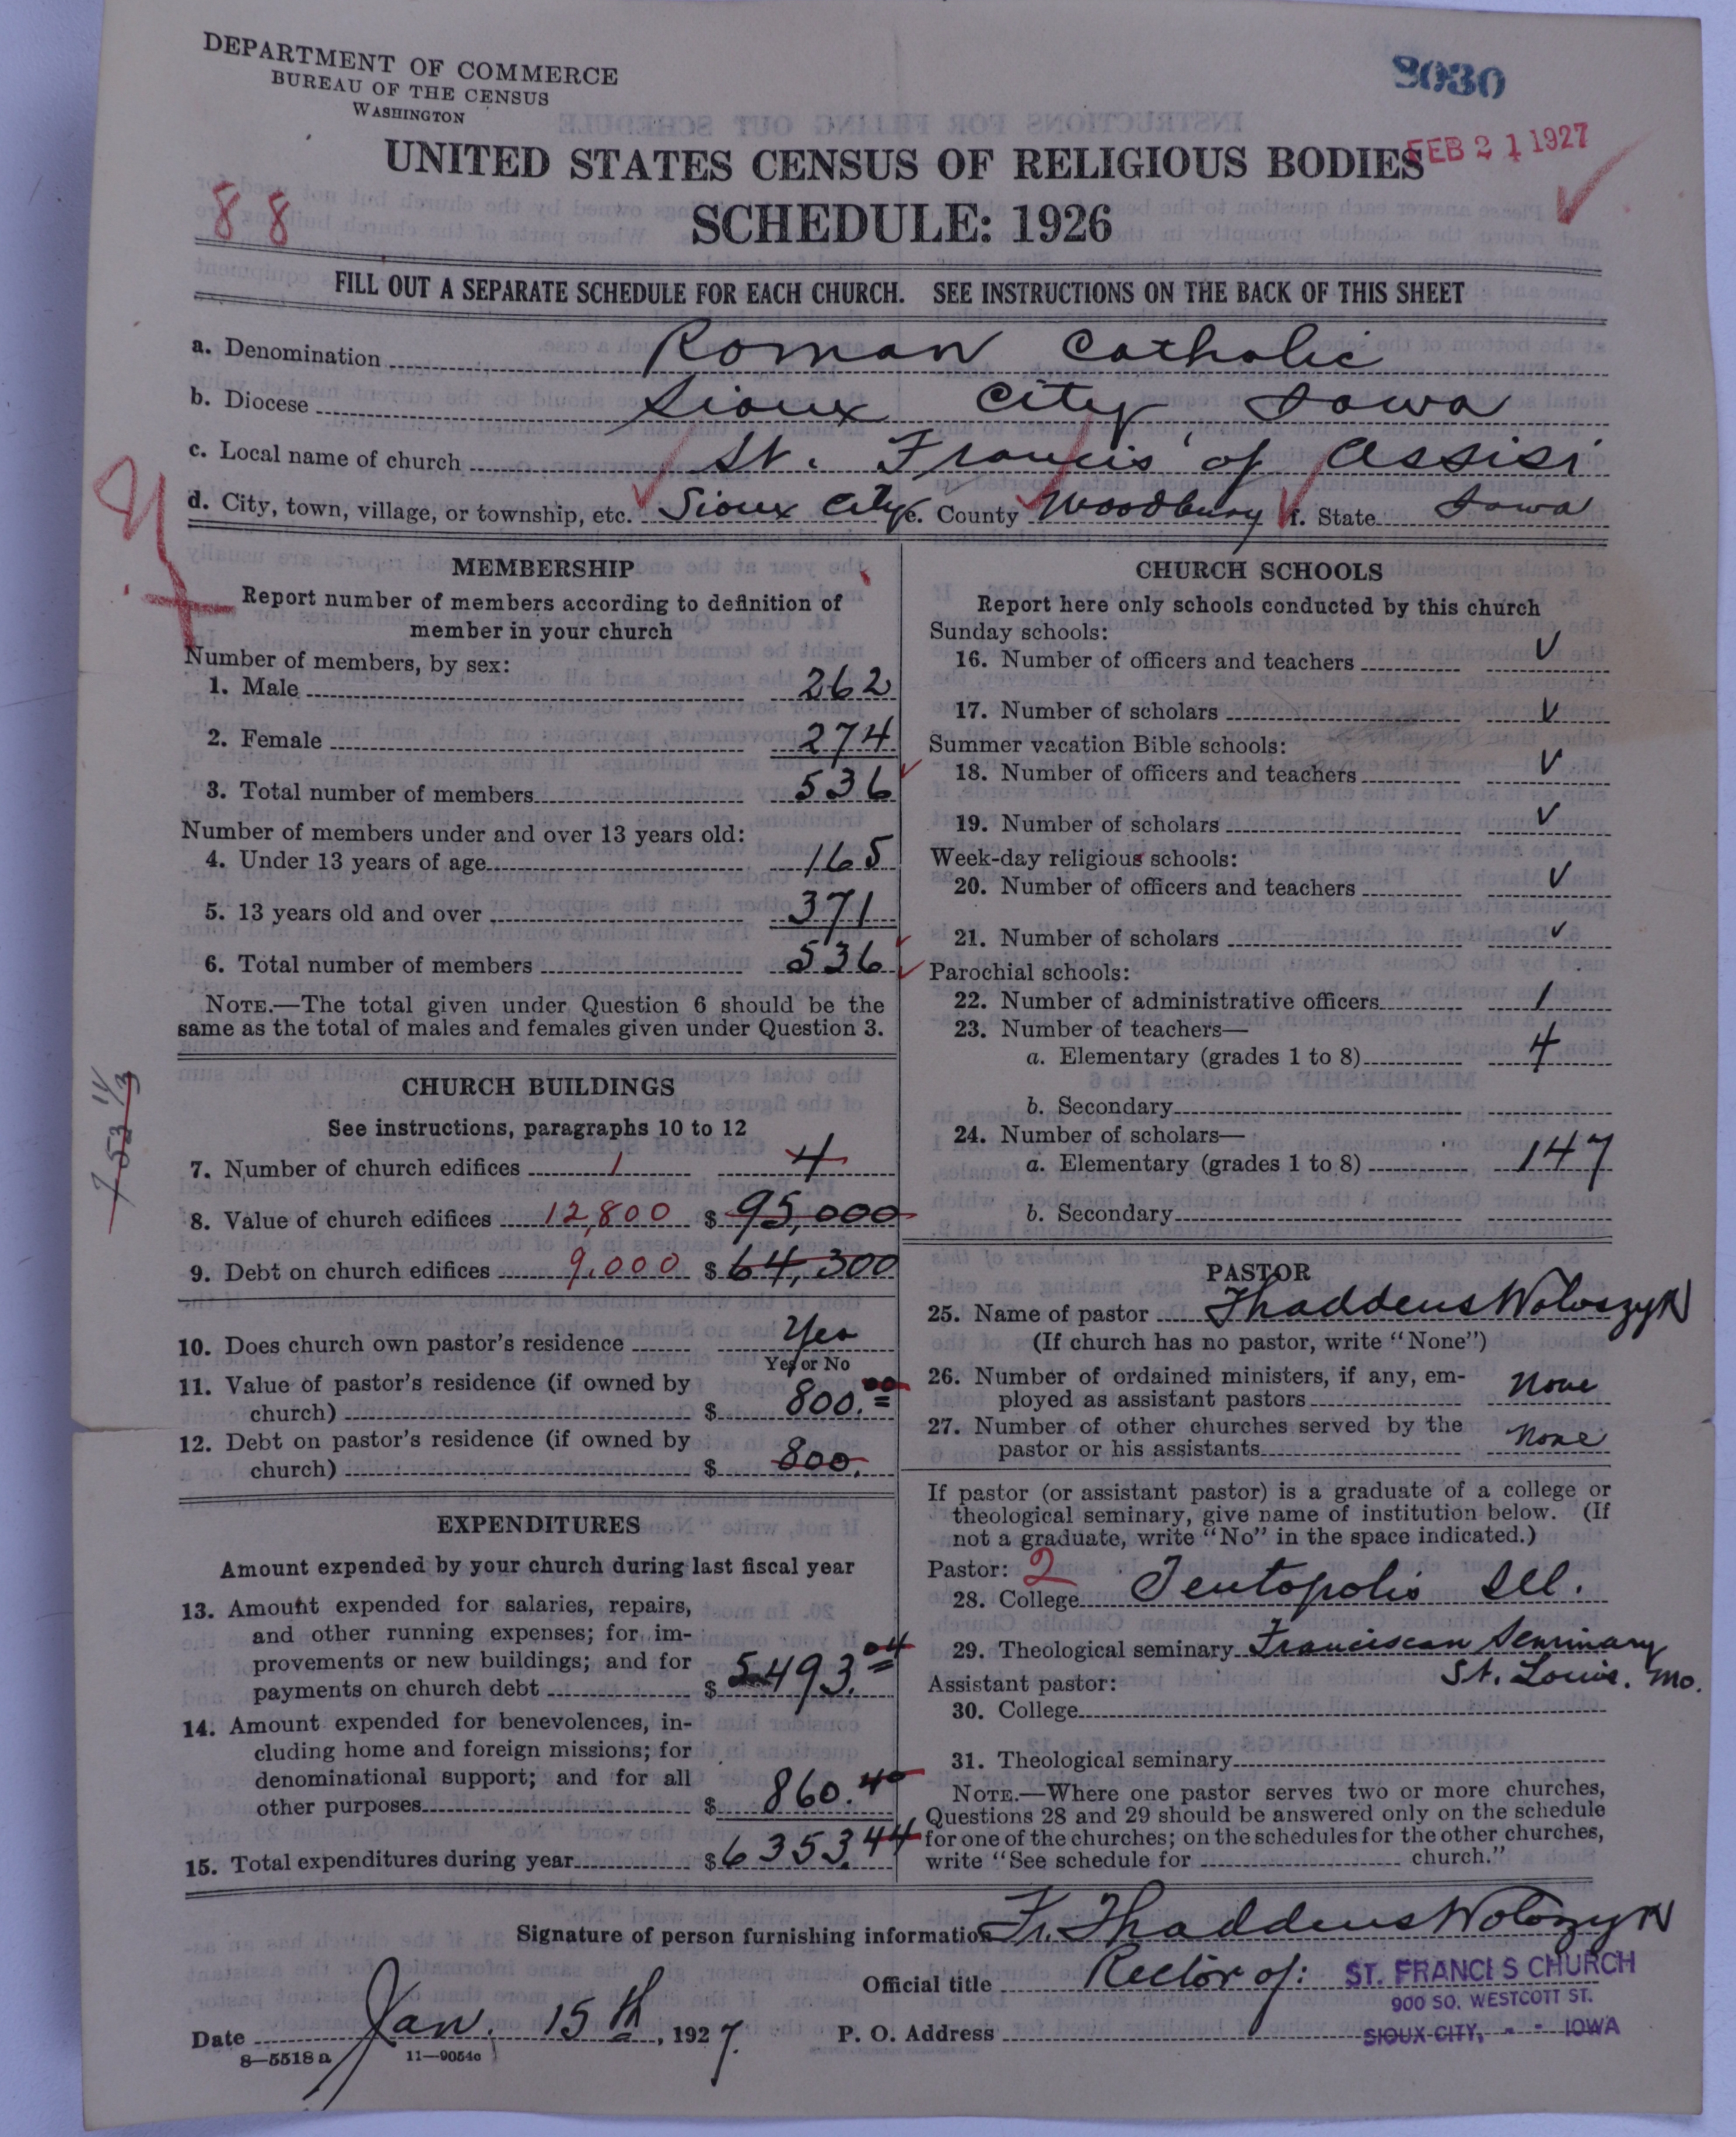 DEPARTMENT OF COMMERCE
BUREAU OF THE CENSUS
WASHINGTON
9030
FEB 21 1927
UNITED STATES CENSUS OF RELIGIOUS BODIES
88
SCHEDULE: 1926
FILL OUT A SEPARATE SCHEDULE FOR EACH CHURCH. SEE INSTRUCTIONS ON THE BACK OF THIS SHEET
a. Denomination Roman Catholic
b. Diocese Sioux City, Iowa
c. Local name of church St. Francis of Assisi
d. City, town, village, or township, etc. Sioux City e. County Woodbury f. State Iowa
MEMBERSHIP
Report number of members according to definition of
member in your church
Number of members, by sex:
1. Male 262
2. Female 274
3. Total number of members 536
Number of members under and over 13 years old:
4. Under 13 years of age 165
5. 13 years old and over 371
6. Total number of members 536
NOTE.—The total given under Question 6 should be the
same as the total of males and females given under Question 3.
CHURCH BUILDINGS
See instructions, paragraphs 10 to 12
7. Number of church edifices 1 4
8. Value of church edifices 12,800 $ 95,000
9. Debt on church edifices 9,000 $ 64,300
10. Does church own pastor's residence Yes
Yes or No
11. Value of pastor's residence (if owned by
church) $ 800.00
12. Debt on pastor's residence (if owned by
church) $ 800.
EXPENDITURES
Amount expended by your church during last fiscal year
13. Amount expended for salaries, repairs,
and other running expenses; for im-
provements or new buildings; and for
payments on church debt $ 5493.04
14. Amount expended for benevolences, in-
cluding home and foreign missions; for
denominational support; and for all
other purposes $ 860.40
15. Total expenditures during year $ 6353.44
CHURCH SCHOOLS
Report here only schools conducted by this church
Sunday schools:
16. Number of officers and teachers
17. Number of scholars
Summer vacation Bible schools:
18. Number of officers and teachers
19. Number of scholars
Week-day religious schools:
20. Number of officers and teachers
21. Number of scholars
Parochial schools:
22. Number of administrative officers 1
23. Number of teachers—
a. Elementary (grades 1 to 8) 4
b. Secondary
24. Number of scholars—
a. Elementary (grades 1 to 8) 147
b. Secondary
PASTOR
25. Name of pastor Thaddeus Woloszyn
(If church has no pastor, write "None")
26. Number of ordained ministers, if any, em-
ployed as assistant pastors None
27. Number of other churches served by the
pastor or his assistants None
If pastor (or assistant pastor) is a graduate of a college or
theological seminary, give name of institution below. (If
not a graduate, write "No" in the space indicated.)
Pastor: 2
28. College Teutopolis Ill.
29. Theological seminary Franciscan Seminary
St. Louis. Mo.
Assistant pastor:
30. College
31. Theological seminary
NOTE.—Where one pastor serves two or more churches,
Questions 28 and 29 should be answered only on the schedule
for one of the churches; on the schedules for the other churches,
write "See schedule for church."
Signature of person furnishing information Fr. Thaddeus Woloszyn
Official title Rector of: ST. FRANCIS CHURCH
900 SO. WESTCOTT ST.
Date Jan. 15th, 1927. P. O. Address SIOUX CITY, - - IOWA
8—5518a 11—9054c